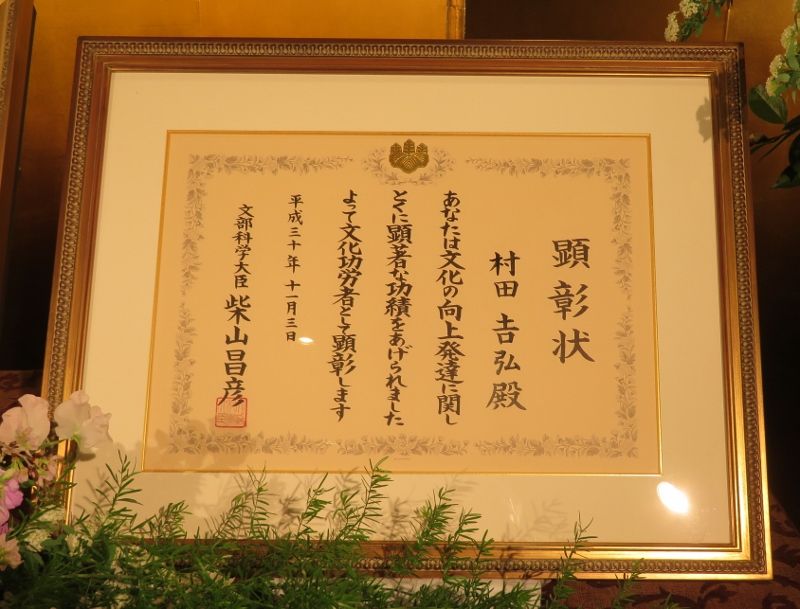 顕彰状
村田吉弘殿
あなたは文化の向上発達に関し
とくに顕著な功績をあげられました
よって文化功労者として顕彰します
平成三十年十一月三日
文部科学大臣 柴山昌彦